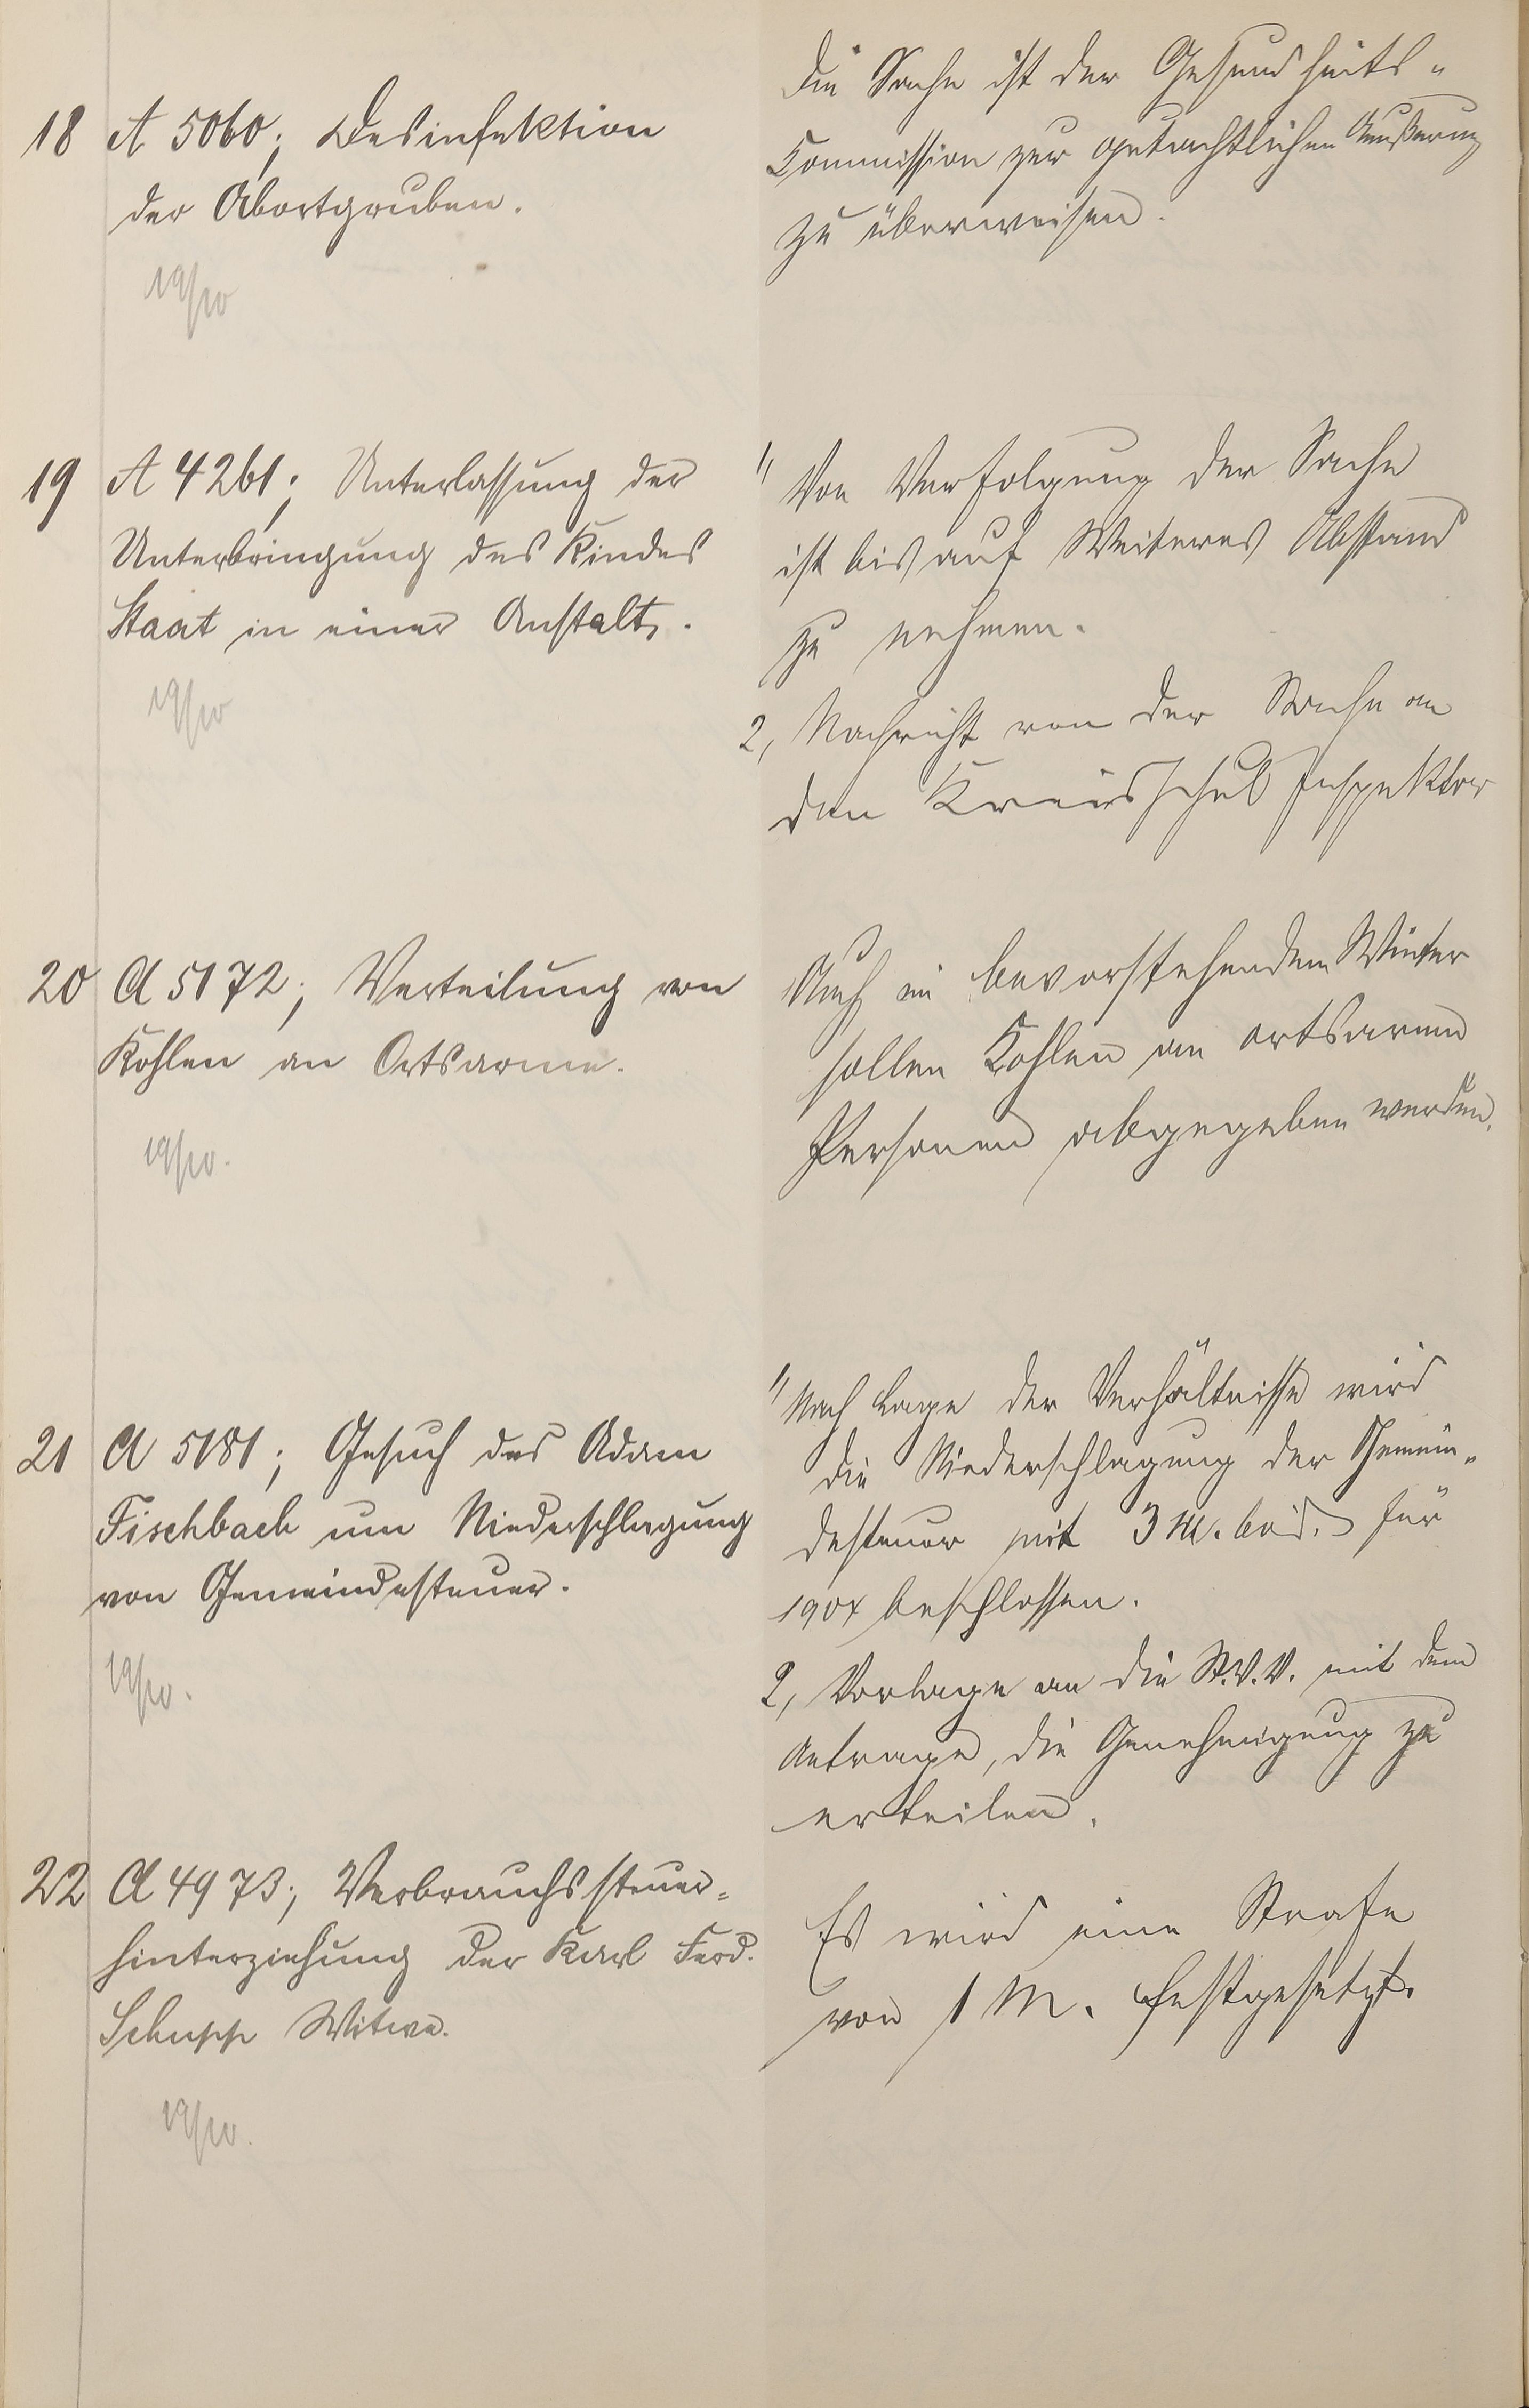 18 A 5060; Desinfektion
der Abortgruben.
19/10
Die Sache ist der Gesundheits-
Commission zur gutachtlichen Äußerung
zu überweisen.
19 A 4261; Unterlassung der
Unterbringung des Kindes
Staat in einer Anstalt.
19/10
1, Von Verfolgung der Sache
ist bis auf Weiteres Abstand
zu nehmen.
2, Nachricht von der Sache an
den Kreisschul Inspektor
20 A 5172; Verteilung von
Kohlen an Ortsarme.
19/10.
Auch im bevorstehenden Winter
sollen Kohlen an ortsarme
Personen abgegeben werden.
21 A 5181; Gesuch des Adam
Fischbach um Niederschlagung
von Gemeindesteuer.
19/10.
1, Nach Lage der Verhältnisse wird
die Niederschlagung der Gemein-
desteuer mit 3 M. für
1904 beschlossen.
2, Vorlage an die St.V.V. mit dem
Antrage, die Genehmigung zu
erteilen.
22 A 4973; Verbrauchssteuer-
hinterziehung der Karl Ferd.
Schupp Witwe.
19/10.
Es wird eine Strafe
von 1 M. festgesetzt.